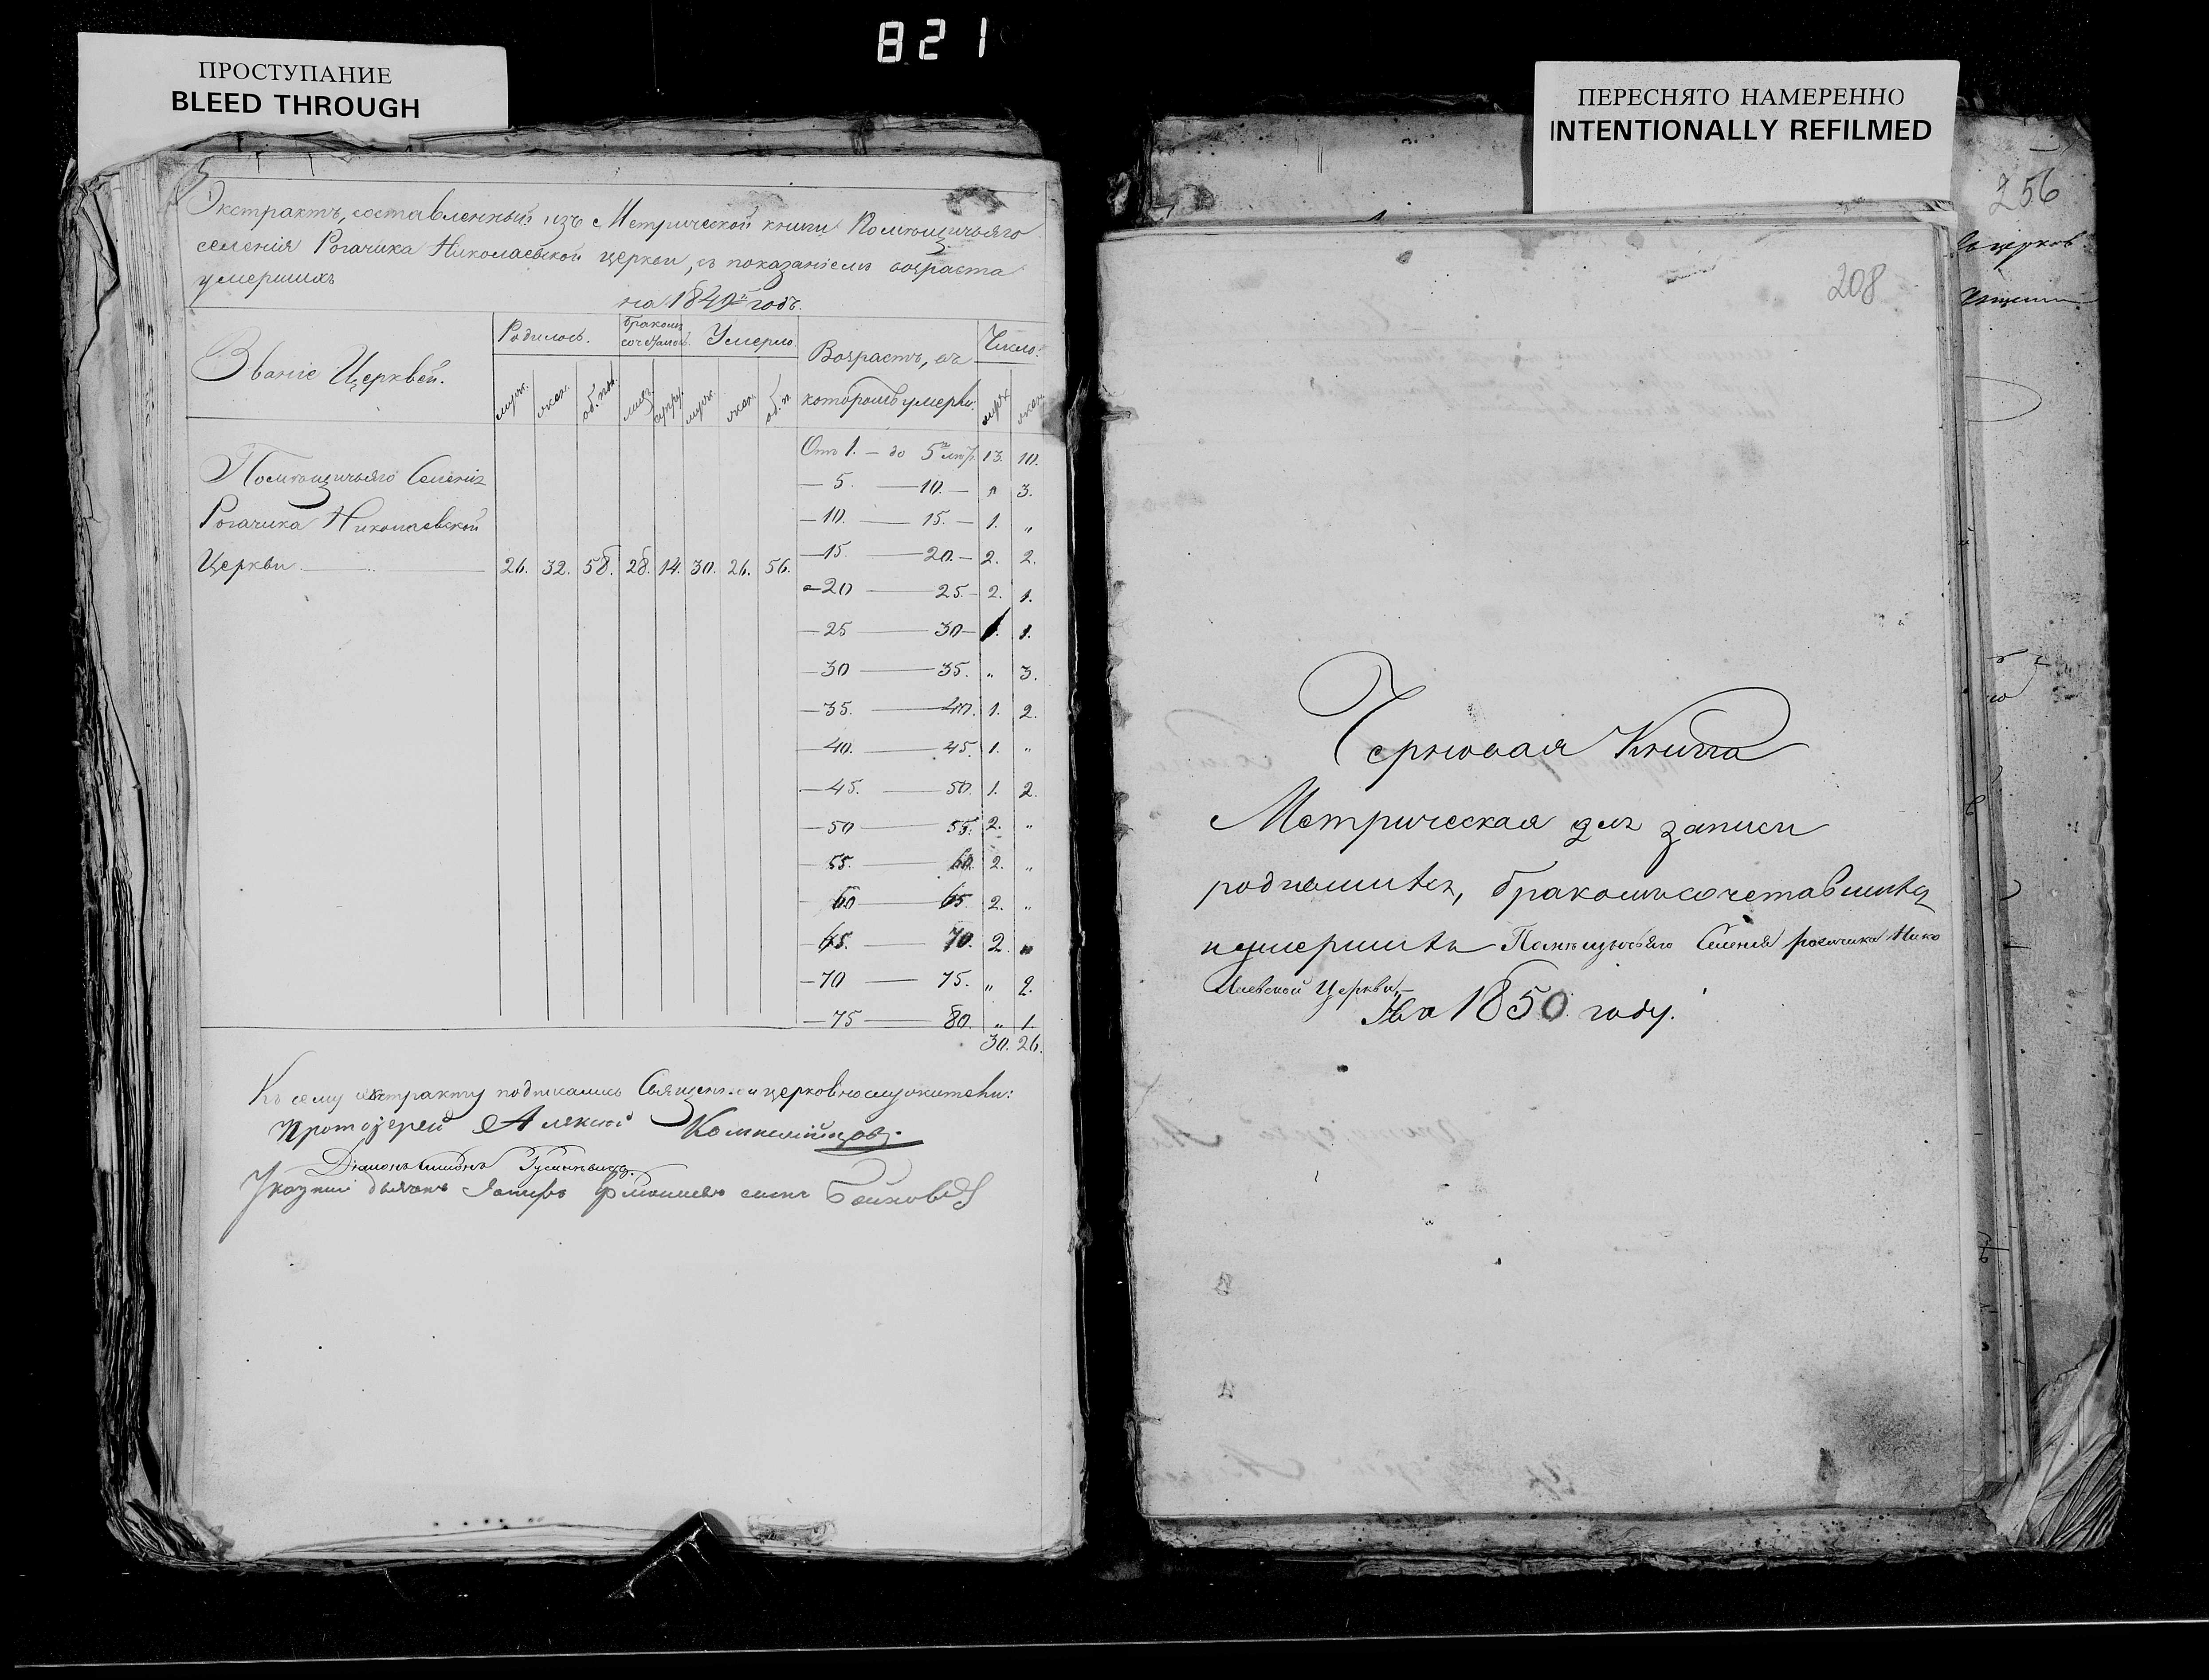 821
ПРОСТУПАНИЕ
BLEED THROUGH
Экстрактъ, составленный изъ Метрической книги Помѣщичьяго
селенія Рогачика Николаевской церкви, съ показаніемъ возраста
умершихъ
на 1849й годъ.
Званіе Церквей. Родилось. бракомъ сочеталось. Умерло. Возрастъ, въ которомъ умерли. Число.
муж. жен. об. пол. лиц. супру. муж. жен. об. п. муж. жен.
Отъ 1. — до 5 лѣтъ 13. 10.
Помѣщичьяго Селенія
— 5. — 10. — „ 3.
Рогачика Николаевской
— 10. — 15. — 1. „
Церкви 26. 32. 58. 28. 14. 30. 26. 56.
— 15. — 20. — 2. 2.
— 20 — 25. — 2. 1.
— 25 — 30 — 1. 1.
— 30 — 35. „ 3.
— 35. — 40. 1. 2.
— 40. — 45. 1. „
— 45. — 50. 1. 2.
— 50 — 55. 2. „
— 55. — 60. 2. „
— 60 — 65. 2. „
— 65. — 70. 2. „
— 70 — 75. „ 2.
— 75 — 80. „ 1.
30. 26.
Къ сему экстракту подписались Священно и церковнослужители:
Протоіерей Алексій
Діаконъ
дьячокъ сынъ
ПЕРЕСНЯТО НАМЕРЕННО
INTENTIONALLY REFILMED
256
208
Черновая Книга
Метрическая для записи
родившихся, бракомъ сочетавшихся
и умершихъ Помѣщичьяго Селенія Рогачика Нико
лаевской Церкви,
На 1850 году.